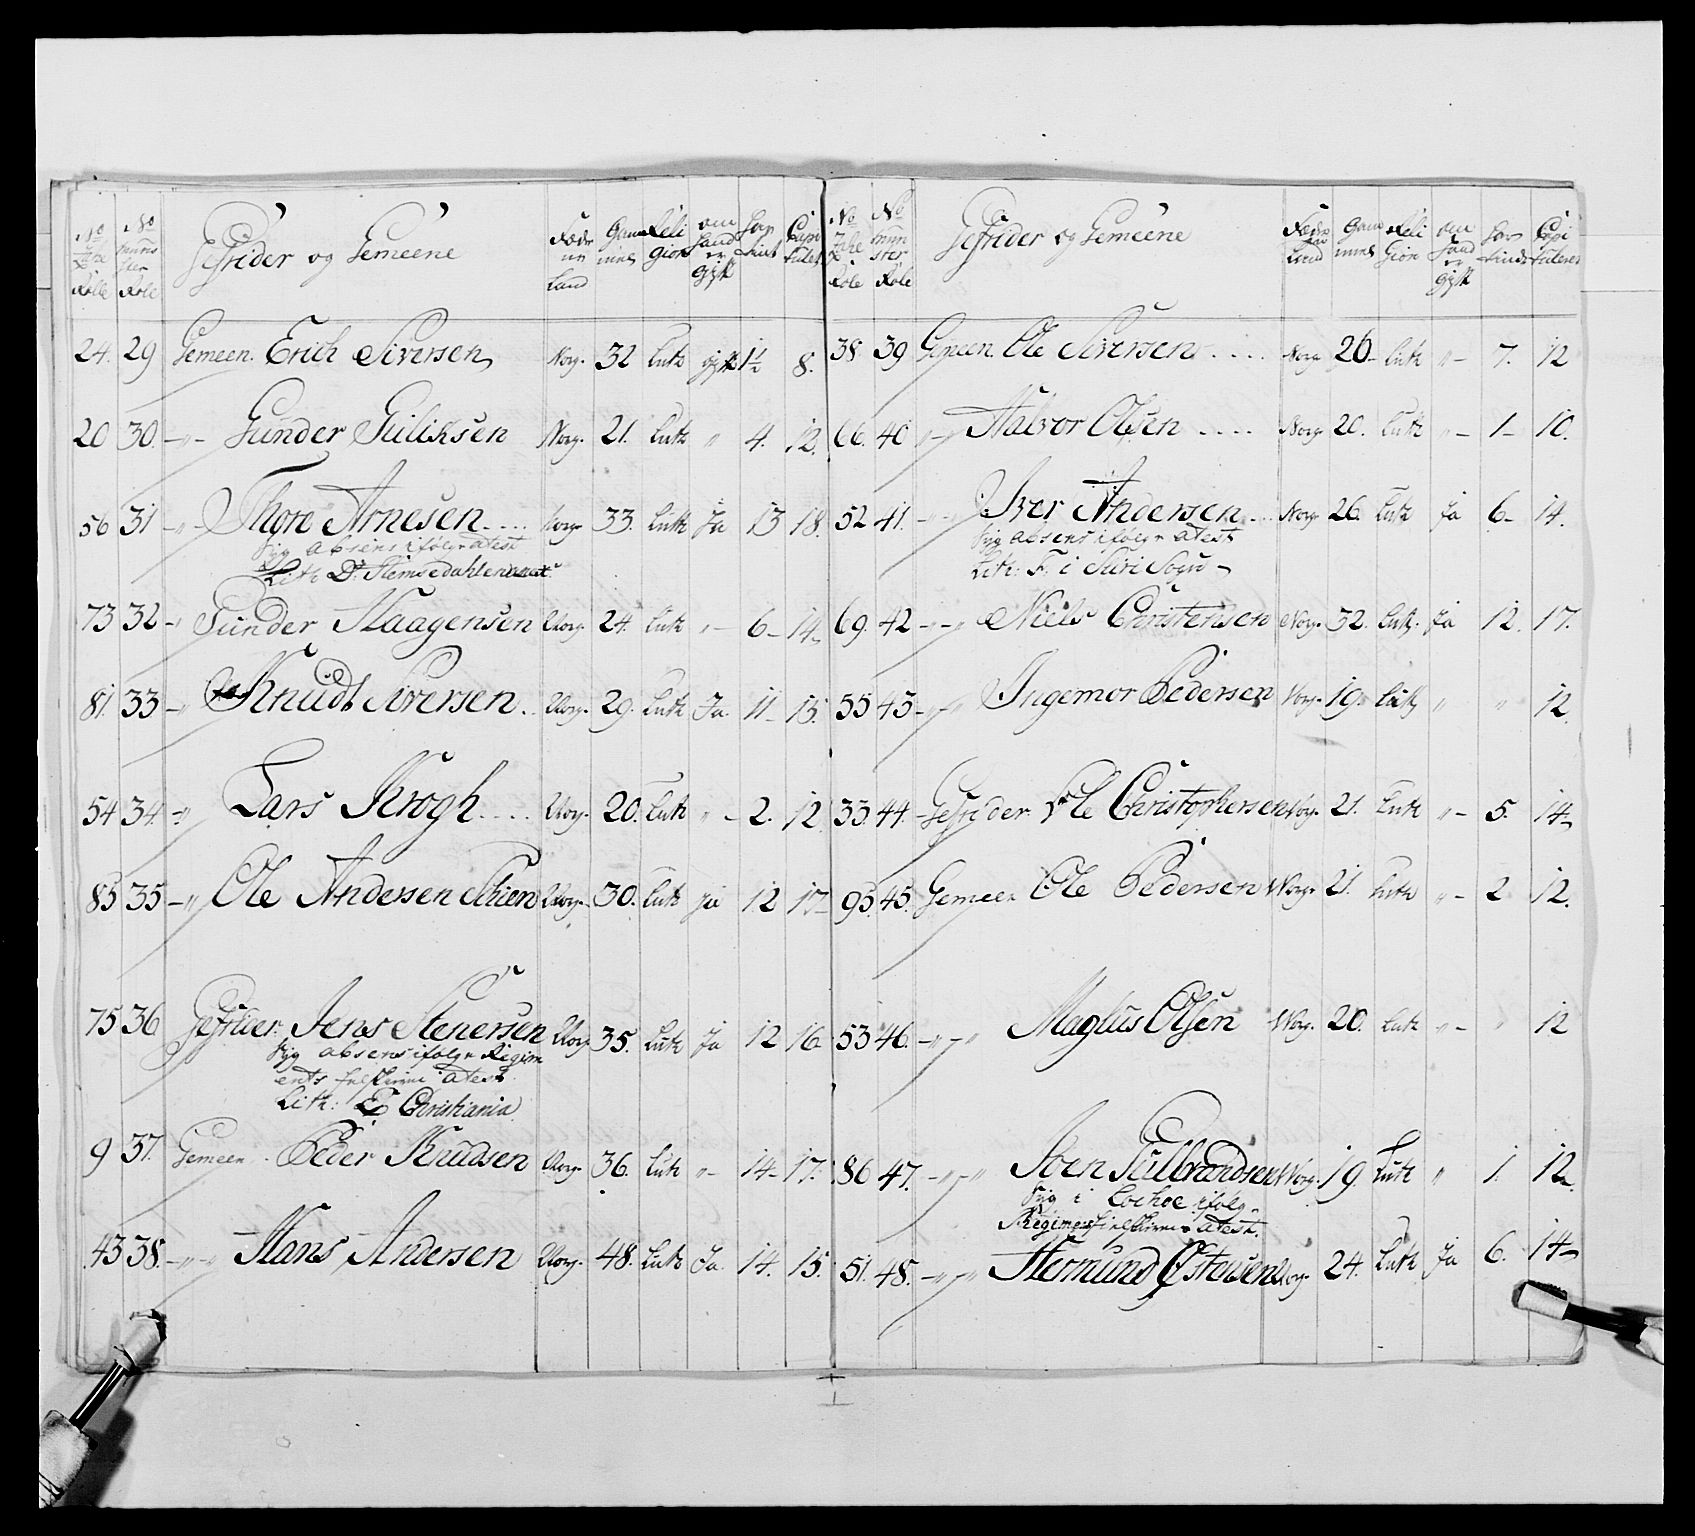 No No Gefrider og Gemeene Føde Gam Reli om hand er gift Capi
Rolle Rolle Land mel gion tulert
24. 29 Gemeen. Erich Siversen Norg. 32 Luth gift 1½ 8.
20 30. —„— Gunder Guliksen Norg. 21. Luth „ 4. 12.
56 31 —„— Thore Arnesen .... Norg. 33. Luth Ja 13 18.
Syg absens ifølge atest
Lith D: Hemsedahlen
73 32 —„ Gunder Haagensen Norg. 24. Luth „— 6— 14—
81. 33 —„ Knudt Siversen .. Norg. 29. Luth Ja. 11— 15.
54 34. —„ Lars Krogh .... Norg. 20. Luth „— 2. 12
85 35 —„ Ole Andersen Schien Norg. 30. Luth ja 12 17—
75 36 Gefrider. Jens Stenersen Norg 35. Luth Ja 12 16
Syg absens ifølge Regim
ents atest
Lith: E Christiania
9 37. Gemeen. Peder Knudsen Norg. 36. Luth „— 14— 17.
43 38. —„—„ Hans Andersen Norg. 48. Luth Ja. 14. 15.
No No Gefrider og Gemeene Føde Land Gam mel Reli Gion om hand er gift Capi tuleret
Role Role
38 39 Gemeen. Ole Siversen .... Norg 26— Luth „— 7. 12
66. 40 „— Halvor Olsen .... Norg 20. Luth „— 1— 10.
52 41. —„— Iver Andersen ... Norg 26. Luth Ja 6— 14.
Syg absens ifølge atest
Lith: F: i Sogn —
69. 42 —„—„ Niels Christensen Norg. 32. Luth. Ja 12. 17.
55 43 —„—„ Ingemor Pedersen Norg. 19. Luth „ „ 12.
33. 44. Gefrider Ole Christophersen Norg. 21. Luth „— 5. 14—
95. 45. Gemeen Ole Pedersen Norg. 21. Luth „— 2 12.
53 46. —„—„ Maglus Olsen Norg. 20. Luth „— „ 12
86 47. —„—„ Iven Gulbrandsen Norg. 19. Luth „ 1. 12.
Syg i ifølge
Regiments atest.
51. 48. —„—„ Hermund Østensen Norg. 24. Luth Ja 6. 14—